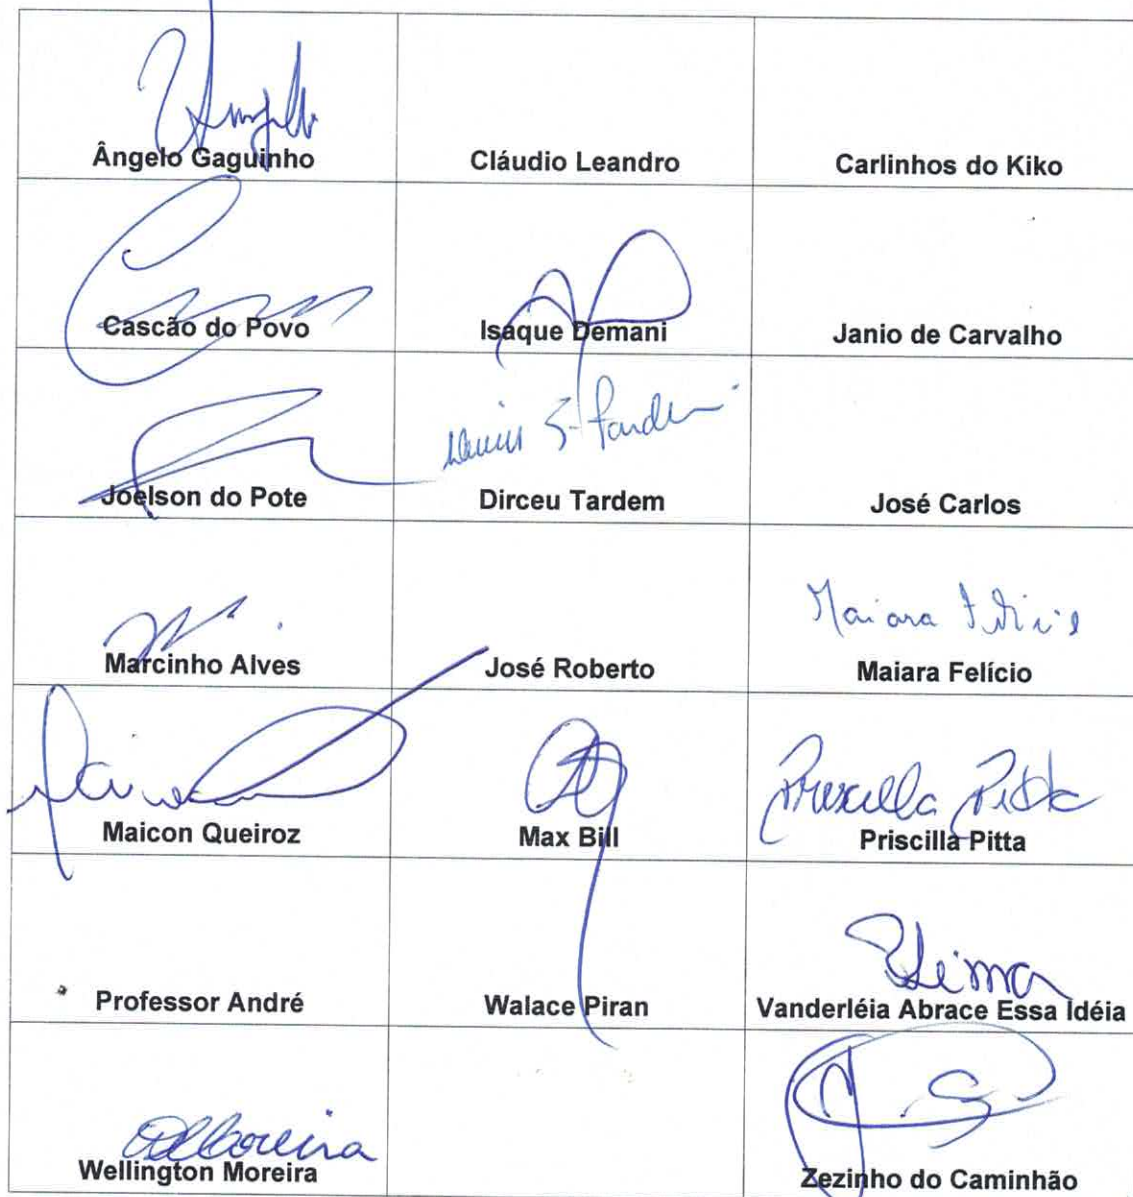 Ângelo Gaguinho
Cláudio Leandro
Carlinhos do Kiko
Cascão do Povo
Isaque Demani
Janio de Carvalho
Joelson do Pote
Dirceu Tardem
José Carlos
Marcinho Alves
José Roberto
Maiara Felício
Maiara Felício
Maicon Queiroz
Max Bill
Priscilla Pitta
Priscilla Pitta
Professor André
Walace Piran
Vanderléia Abrace Essa Idéia
Wellington Moreira
Zezinho do Caminhão